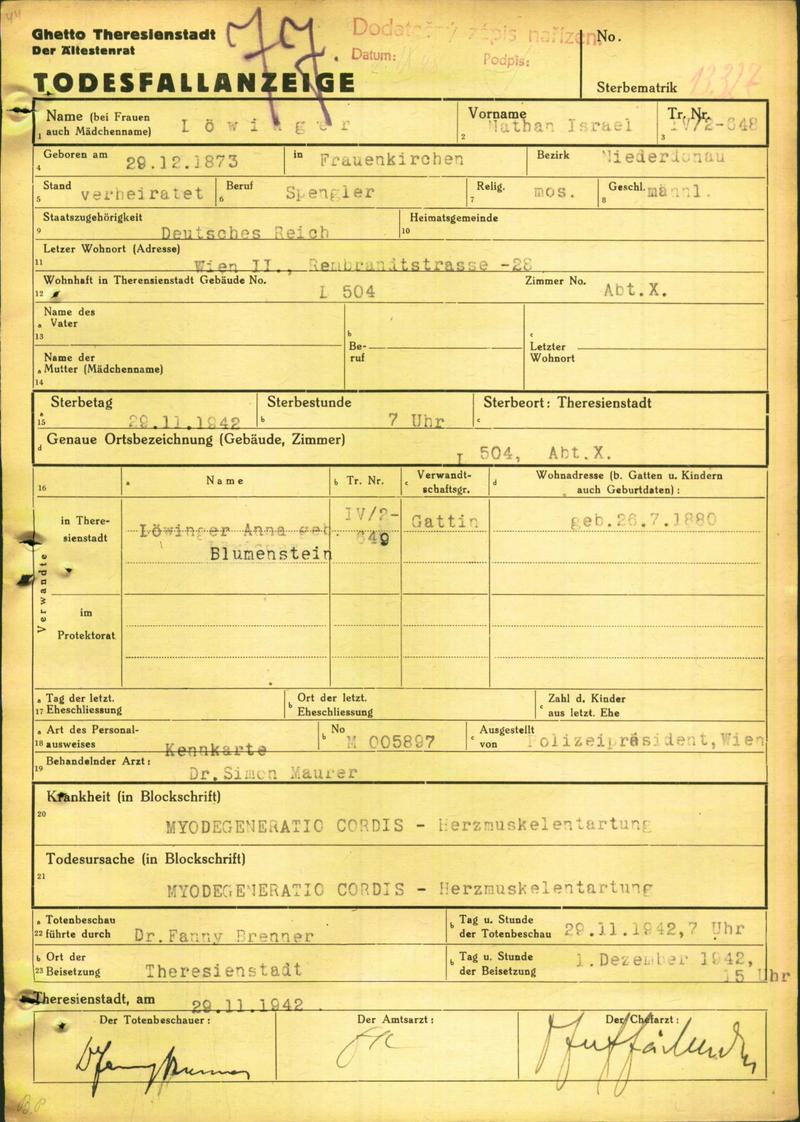 Ghetto Theresienstadt
Der Ältestenrat
TODESFALLANZEIGE
Dodatečný zápis nařízen.
Datum: Podpis:
No.
Sterbematrik
Name (bei Frauen auch Mädchenname) Löwinger
1
Vorname Nathan Israel
2
Tr. Nr. IV/2-648
3
Geboren am 29.12.1873
4
in Frauenkirchen
Bezirk Niederdonau
Stand verheiratet
5
Beruf Spengler
6
Relig. mos.
7
Geschl. männl.
8
Staatszugehörigkeit Deutsches Reich
9
Heimatsgemeinde
10
Letzer Wohnort (Adresse)
11 Wien II., Rembrandtstrasse -28
Wohnhaft in Theresienstadt Gebäude No. L 504
12
Zimmer No. Abt.X.
Name des
a Vater
13
b
Be-
ruf
c
Letzter
Wohnort
Name der
a Mutter (Mädchenname)
14
Sterbetag
a
15 29.11.1942
Sterbestunde
b 7 Uhr
Sterbeort: Theresienstadt
c
d Genaue Ortsbezeichnung (Gebäude, Zimmer)
L 504, Abt.X.
16
a Name
b Tr. Nr.
c Verwandt-
schaftsgr.
d Wohnadresse (b. Gatten u. Kindern
auch Geburtdaten):
Verwandte
in There-
sienstadt
Löwinger Anna geb.
Blumenstein
IV/2-
649
Gattin
geb.26.7.1880
im
Protektorat
a Tag der letzt.
17 Eheschliessung
b Ort der letzt.
Eheschliessung
c Zahl d. Kinder
aus letzt. Ehe
a Art des Personal-
18 ausweises Kennkarte
b No M 005897
c Ausgestellt
von Polizeipräsident,Wien
Behandelnder Arzt:
19 Dr.Simon Maurer
Krankheit (in Blockschrift)
20
MYODEGENERATIO CORDIS - Herzmuskelentartung
Todesursache (in Blockschrift)
21
MYODEGENERATIO CORDIS - Herzmuskelentartung
a Totenbeschau
22 führte durch Dr.Fanny Brenner
b Tag u. Stunde
der Totenbeschau 29.11.1942,7 Uhr
b Ort der
23 Beisetzung Theresienstadt
b Tag u. Stunde
der Beisetzung 1.Dezember 1942,
15 Uhr
Theresienstadt, am 29.11.1942.
Der Totenbeschauer:
Der Amtsarzt:
Der Chefarzt: